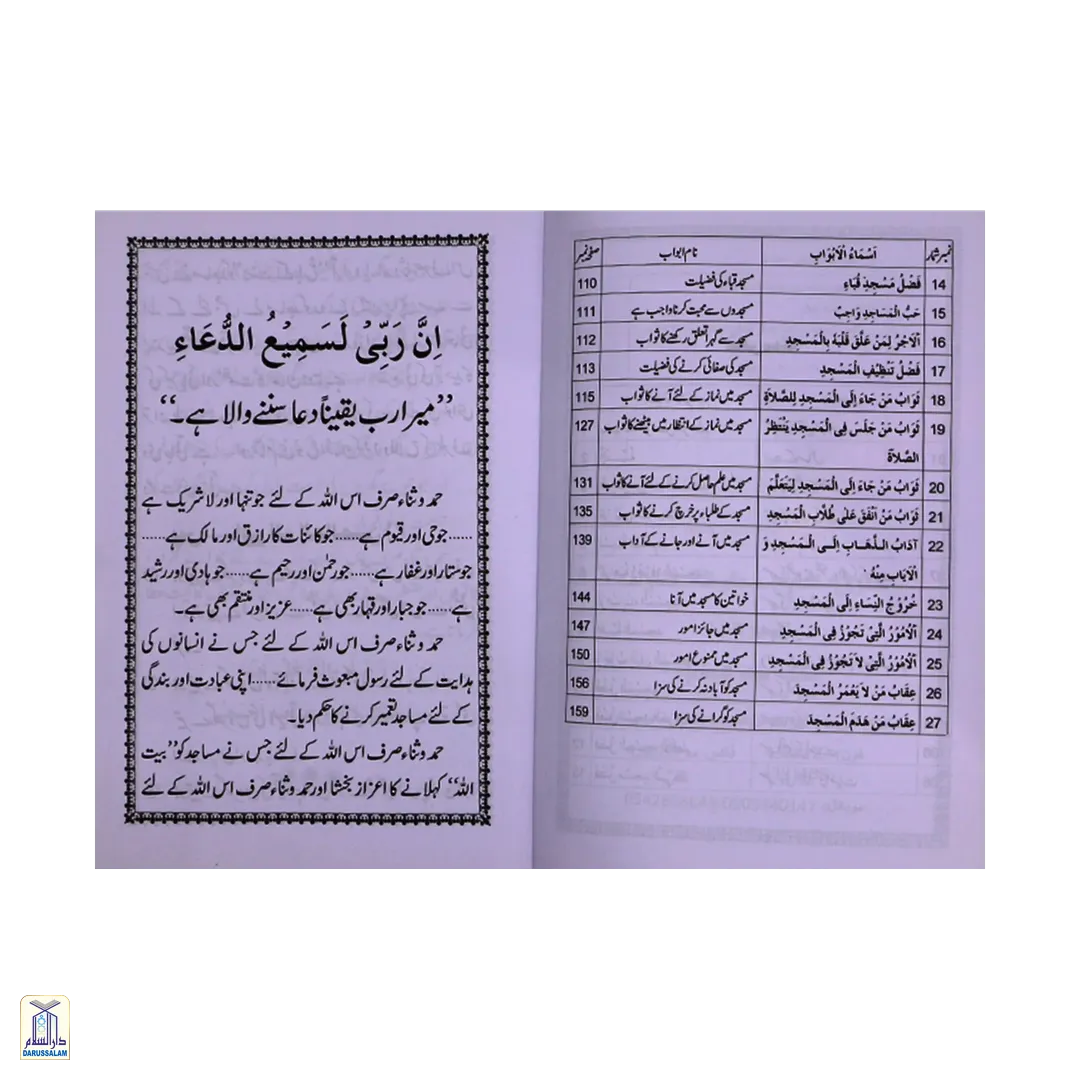 نمبر شمار اَسْمَاءُ الْاَبْوَابِ نام ابواب صفحہ نمبر
14 فَضْلُ مَسْجِدِ قُبَاءِ مسجد قباء کی فضیلت 110
15 حُبُّ الْمَسَاجِدِ وَاجِبٌ مسجدوں سے محبت کرنا واجب ہے 111
16 اَلْاَجْرُ لِمَنْ عَلَّقَ قَلْبَهُ بِالْمَسْجِدِ مسجد سے گہرا تعلق رکھنے کا ثواب 112
17 فَضْلُ تَنْظِيْفِ الْمَسْجِدِ مسجد کی صفائی کرنے کی فضیلت 113
18 ثَوَابُ مَنْ جَاءَ اِلَى الْمَسْجِدِ لِلصَّلَاةِ مسجد میں نماز کے لئے آنے کا ثواب 115
19 ثَوَابُ مَنْ جَلَسَ فِى الْمَسْجِدِ يَنْتَظِرُ مسجد میں نماز کے انتظار میں بیٹھنے کا ثواب 127
الصَّلَاةَ
20 ثَوَابُ مَنْ جَاءَ اِلَى الْمَسْجِدِ لِيَتَعَلَّمَ مسجد میں علم حاصل کرنے کے لئے آنے کا ثواب 131
21 ثَوَابُ مَنْ اَنْفَقَ عَلٰى طُلَّابِ الْمَسْجِدِ مسجد کے طلباء پر خرچ کرنے کا ثواب 135
22 آدَابُ الذَّهَابِ اِلَى الْمَسْجِدِ وَ مسجد میں آنے اور جانے کے آداب 139
الْاِيَابِ مِنْهُ
23 خُرُوْجُ النِّسَاءِ اِلَى الْمَسْجِدِ خواتین کا مسجد میں آنا 144
24 اَلْاُمُوْرُ الَّتِىْ تَجُوْزُ فِى الْمَسْجِدِ مسجد میں جائز امور 147
25 اَلْاُمُوْرُ الَّتِىْ لَا تَجُوْزُ فِى الْمَسْجِدِ مسجد میں ممنوع امور 150
26 عِقَابُ مَنْ لَا يَعْمُرُ الْمَسْجِدَ مسجد کو آباد نہ کرنے کی سزا 156
27 عِقَابُ مَنْ هَدَمَ الْمَسْجِدَ مسجد کو گرانے کی سزا 159
اِنَّ رَبِّىْ لَسَمِيْعُ الدُّعَاءِ
”میرا رب یقیناً دعا سننے والا ہے۔“
حمد و ثناء صرف اس اللہ کے لئے جو تنہا اور لاشریک ہے
......جو حی اور قیوم ہے......جو کائنات کا رازق اور مالک ہے......
جو ستار اور غفار ہے......جو رحمٰن اور رحیم ہے......جو ہادی اور رشید
ہے......جو جبار اور قہار بھی ہے......عزیز اور منتقم بھی ہے۔
حمد و ثناء صرف اس اللہ کے لئے جس نے انسانوں کی
ہدایت کے لئے رسول مبعوث فرمائے......اپنی عبادت اور بندگی
کے لئے مساجد تعمیر کرنے کا حکم دیا۔
حمد و ثناء صرف اس اللہ کے لئے جس نے مساجد کو ”بیت
اللہ“ کہلانے کا اعزاز بخشا اور حمد و ثناء صرف اس اللہ کے لئے
دارالسلام
DARUSSALAM